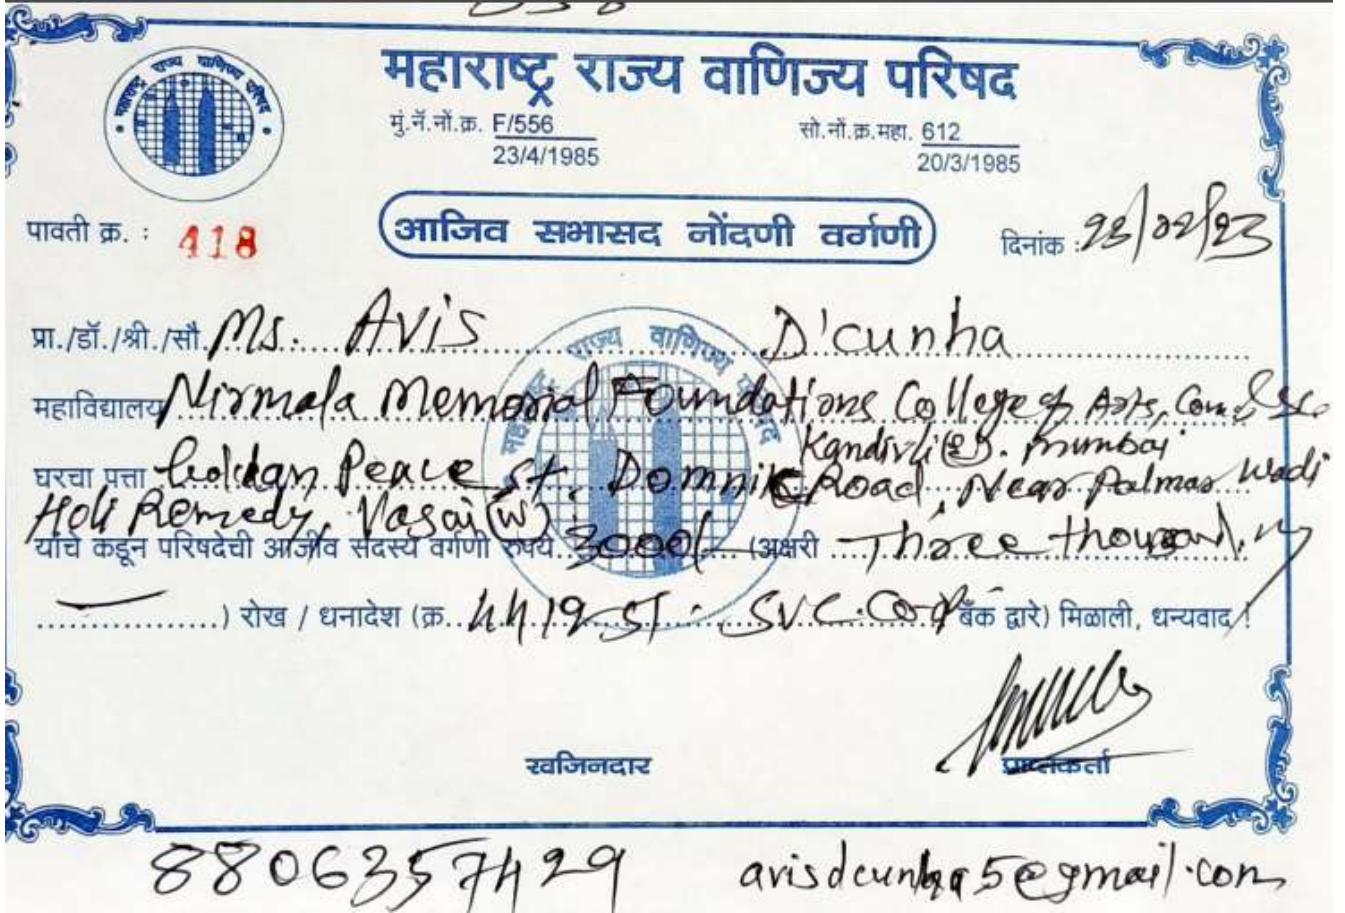 महाराष्ट्र राज्य वाणिज्य परिषद
महाराष्ट्र राज्य वाणिज्य परिषद
मुं.नॅ.नों.क्र. F/556 सो.नों.क्र.महा. 612
23/4/1985 20/3/1985
पावती क्र. : 418 आजिव सभासद नोंदणी वर्गणी दिनांक : 23/02/23
प्रा./डॉ./श्री./सौ. Ms. Avis D'cunha
महाविद्यालय Nirmala Memorial Foundations College of Arts, Com. & Sc.
Kandivli (E). Mumbai
घरचा पत्ता Goldan Peace st. Domnic Road, Near Palmar Wadi
Holi Remedy, Vasai (W)
यांचे कडून परिषदेची आजीव सदस्य वर्गणी रुपये 3000/- (अक्षरी Three thousand
) रोख / धनादेश (क्र. SVC. Cop बँक द्वारे) मिळाली, धन्यवाद !
महाराष्ट्र राज्य वाणिज्य परिषद
खजिनदार प्राप्तकर्ता
8806357429 avisdcunha5@gmail.com